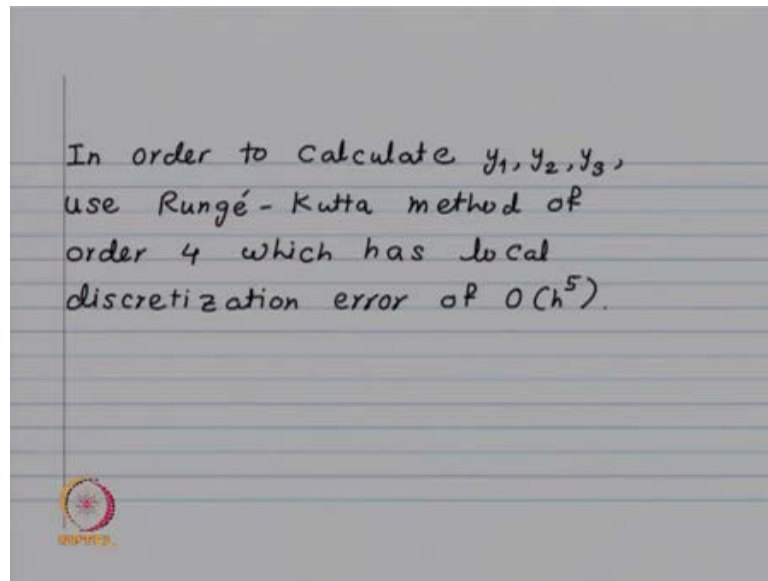 In order to calculate y₁, y₂, y₃,
use Rungé - Kutta method of
order 4 which has local
discretization error of O(h⁵).
NPTEL